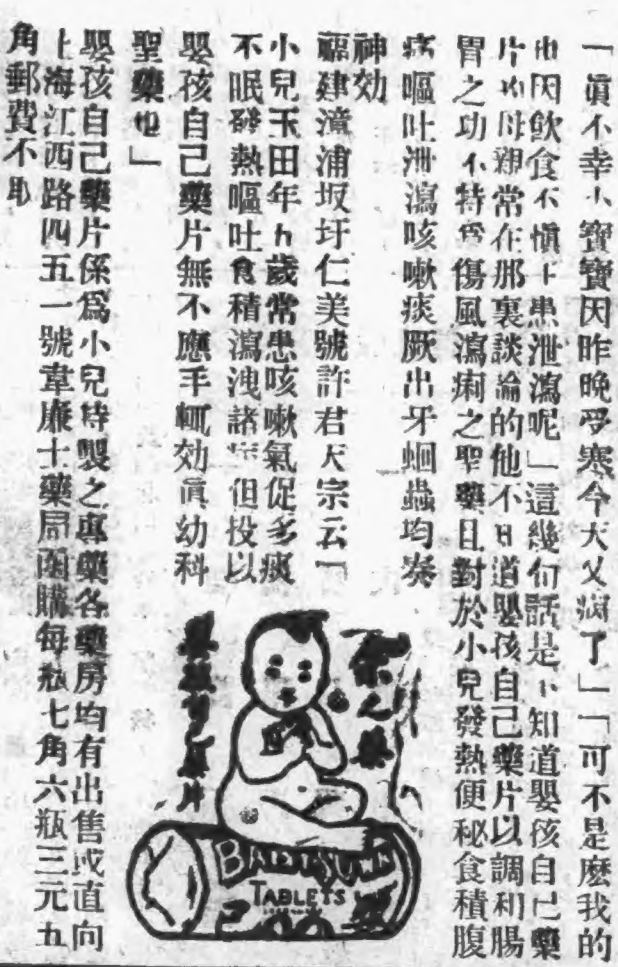 「眞不幸小寶寶因昨晚受寒今天又瀉了」「可不是麽我的
也因飲食不愼上患泄瀉呢」這幾句話是不知道嬰孩自己藥
片的母親常在那裏談論的他不曰道嬰孩自己藥片以調和腸
胃之功不特爲傷風瀉痢之聖藥且對於小兒發熱便秘食積腹
痛嘔吐泄瀉咳嗽痰厥出牙蛔蟲均奏
神効
福建漳浦坂圩仁美號許君天宗云「
小兒玉田年九歲常患咳嗽氣促多痰
不眠發熱嘔吐食積瀉洩諸症但投以
嬰孩自己藥片無不應手輒効眞幼科
聖藥也」
嬰孩自己藥片係爲小兒特製之專藥各藥房均有出售或直向
上海江西路四五一號韋廉士藥局函購每瓶七角六瓶三元五
角郵費不取
嬰孩自己藥片
BABY'S OWN
TABLETS